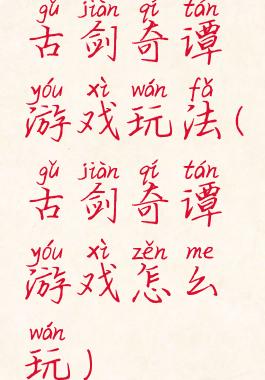 gǔ jiàn qí tán
古剑奇谭
yóu xì wán fǎ
游戏玩法(
gǔ jiàn qí tán
古剑奇谭
yóu xì zěn me
游戏怎么
wán
玩)